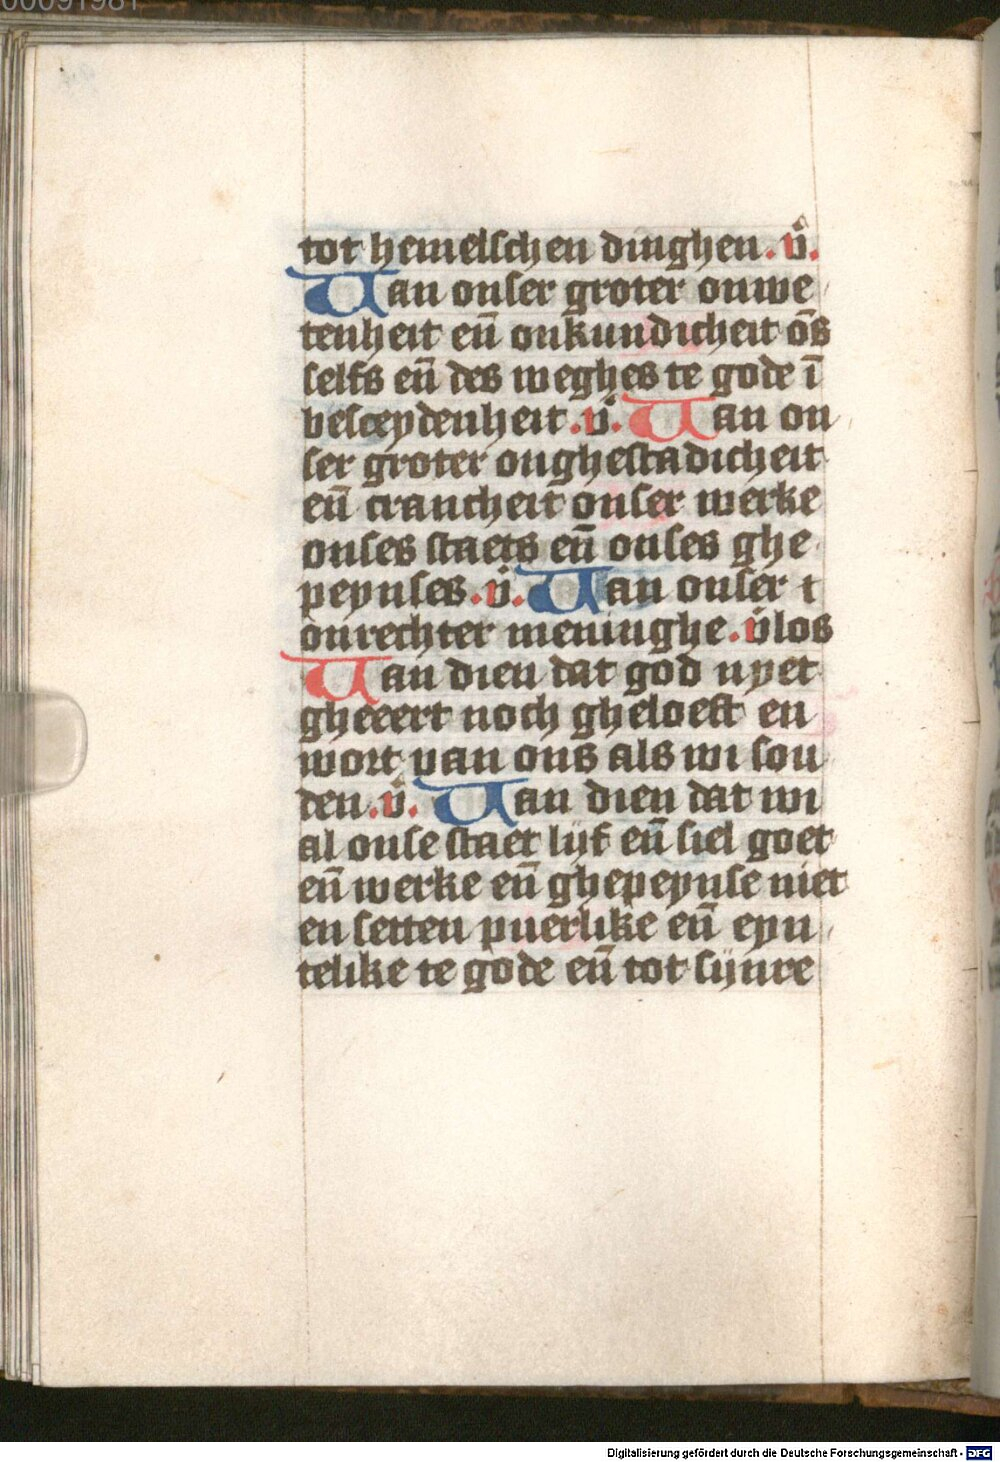 00091981
tot hemelschen dinghen . v̊ .
Van onser groter onwe
tenheit en̄ onkundicheit ōs
selfs en̄ des weghes te gode ī
besceydenheit . v̊ . Van on
ser groter onghestadicheit
en̄ crancheit onser werke
onses staets en̄ onses ghe
peynses . v̊ . Van onser t
onrechter meninghe . v̊los
Van dien dat god nyet
gheeert noch gheloeft en
wort van ons als wi sou
den . v̊ . Van dien dat wi
al onse staet lijf en̄ siel goet
en̄ werke en̄ ghepeynse niet
en setten puerlike en̄ eyn
telike te gode en̄ tot sijnre
Digitalisierung gefördert durch die Deutsche Forschungsgemeinschaft - DFG